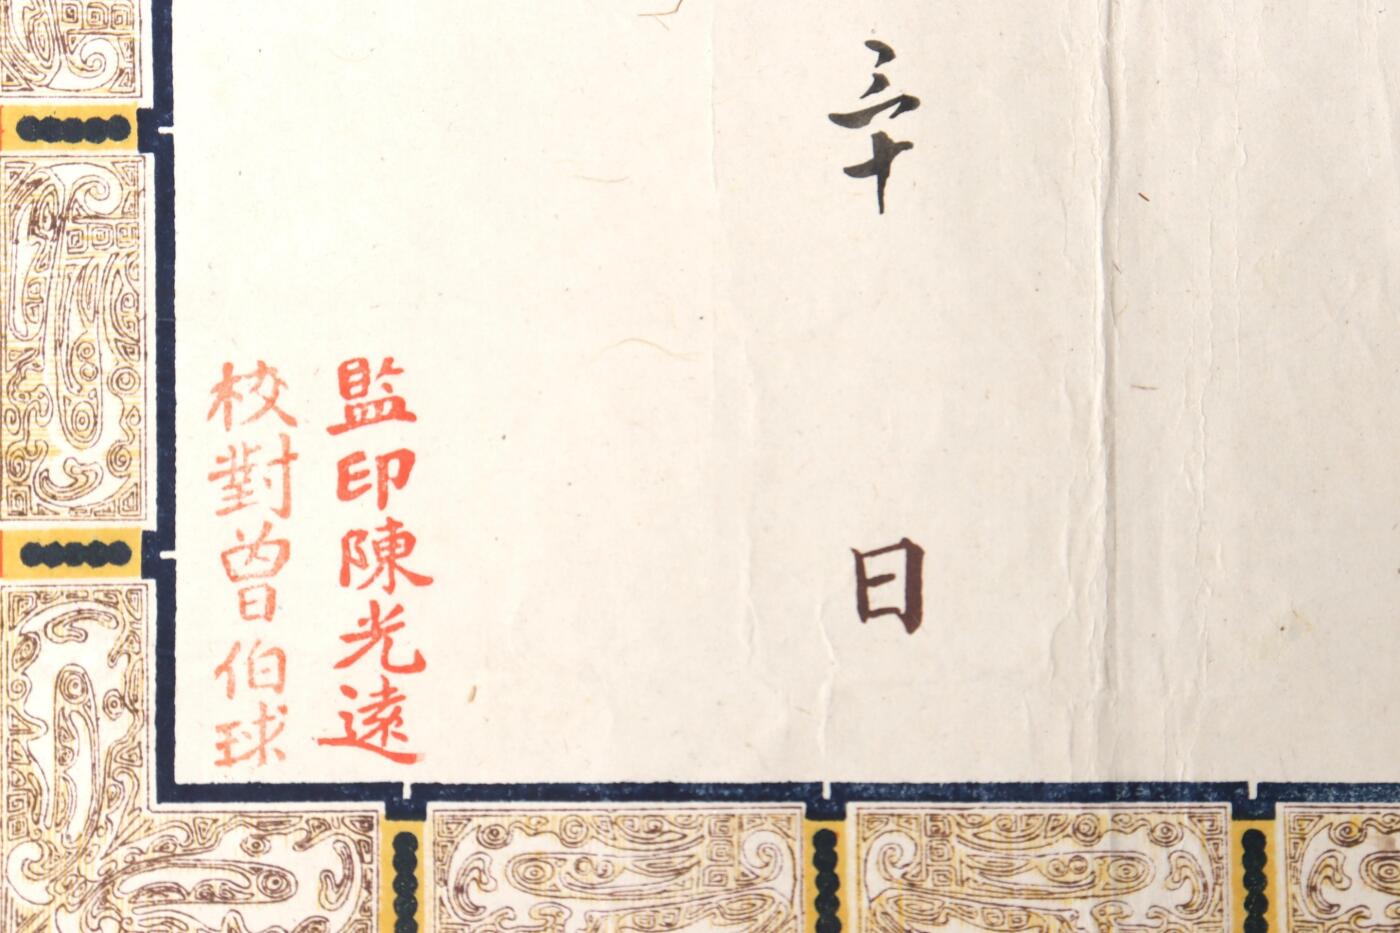 三十日
監印陳光遠
校對曾伯球